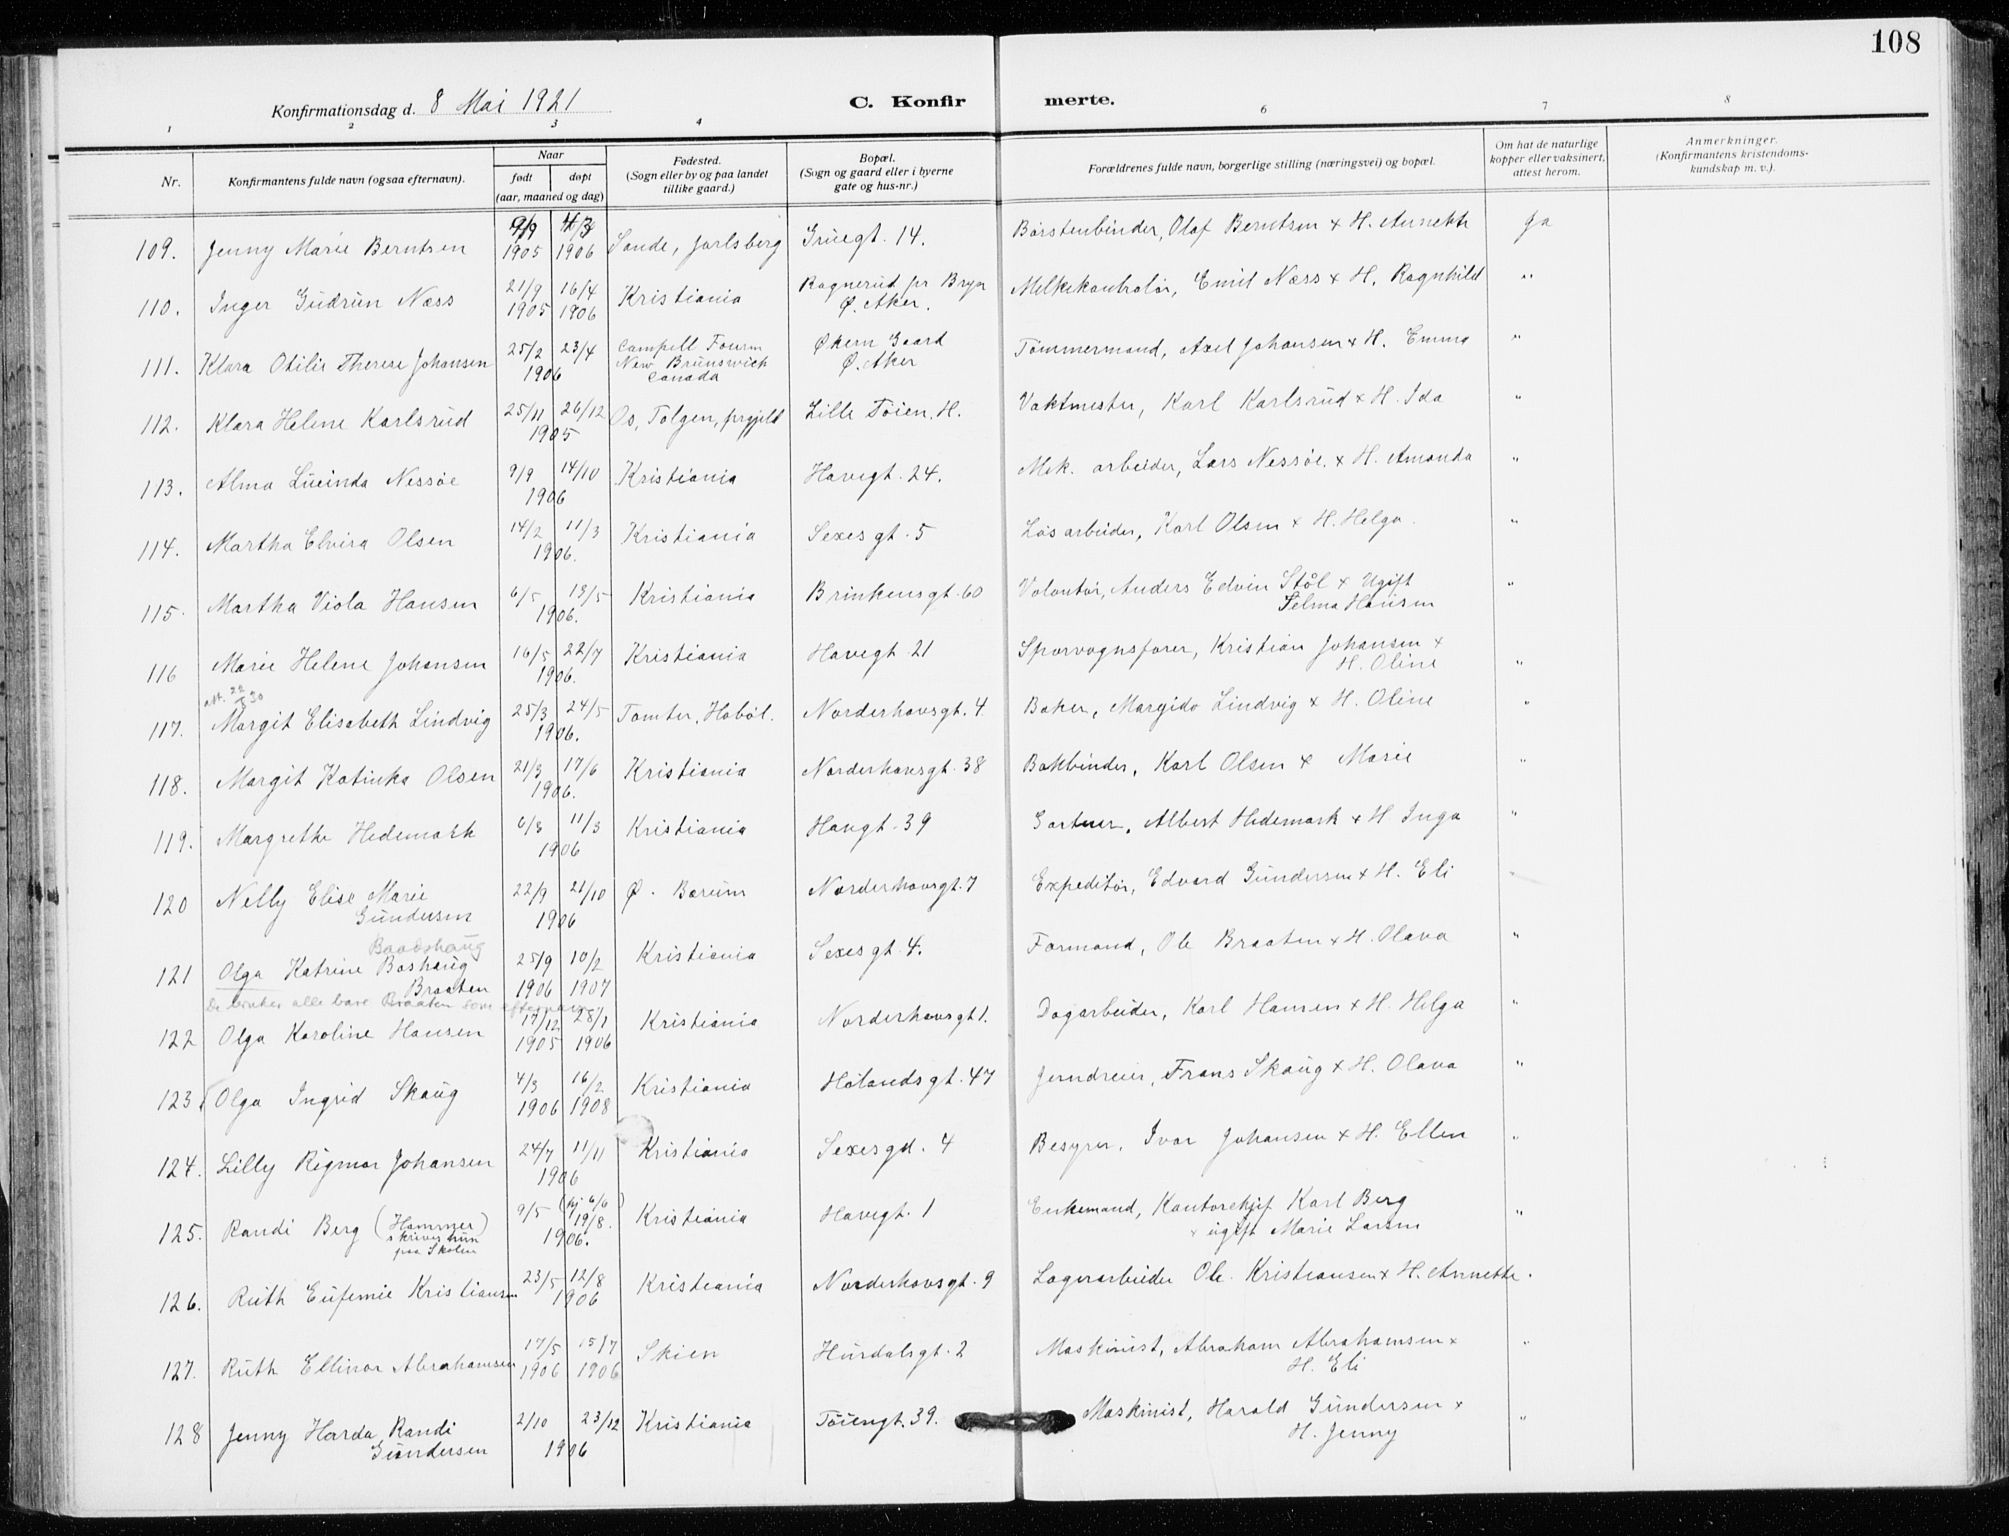 108
Konfirmationsdag d. 8 Mai 1921
C. Konfirmerte.
1 2 3 4 6 7 8
Nr. Konfirmantens fulde navn (ogsaa efternavn). Naar født døpt (aar, maaned og dag) Fødested. (Sogn eller by og paa landet tillike gaard.) Bopæl. (Sogn og gaard eller i byerne gate og hus-nr.) Forældrenes fulde navn, borgerlige stilling (næringsvei) og bopæl. Om hat de naturlige kopper eller vaksinert, attest herom. Anmerkninger. (Konfirmantens kristendoms-kundskap m. v.).
109. Jenny Marie Berntsen 9/9 1905 4/3 1906 Sande, Jarlsberg Gruegt. 14. Børstenbinder, Olaf Berntsen + H. Annette Ja
110. Inger Gudrun Næss 21/9 1905 16/4 1906 Kristiania Ragnerud pr Bryn Ø. Aker. Melkekontrolør, Emil Næss + H. Ragnhild "
111. Klara Otilie Therese Johansen 25/2 23/4 1906 Campell Fourm New Brunswich Canada Økern Gaard Ø. Aker Tømmermand, Axel Johansen + H. Emma "
112. Klara Helene Karlsrud 25/11 26/12 1905 Os, Tolgen, prgjeld Lille Tøien, H. Vaktmester, Karl Karlsrud + H. Ida "
113. Alma Lucinda Nessøe 9/9 14/10 1906 Kristiania Havegt. 24. Mek. arbeider, Lars Nessøe. + H. Amanda "
114. Martha Elvira Olsen 14/2 11/3 1906. Kristiania Sexesgt. 5 Løsarbeider, Karl Olsen + H. Helga. "
115. Martha Viola Hansen 6/5 13/5 1906. Kristiania Brinkensgt. 60 Volontør, Anders Edvin Stål + Ugift Selma Hansen "
116 Marie Helene Johansen 16/5 22/7 1906. Kristiania Havegt. 21 Sporvognsfører, Kristian Johansen + H. Oline "
att. 22/5 30
117. Margit Elisabeth Lindvig 25/3 24/5 1906. Tomter, Hobøl. Norderhovsgt. 4 Baker, Margido Lindvig + H. Oline "
118. Margit Katinka Olsen 21/3 17/6 1906. Kristiania Norderhovsgt. 38 Bokbinder, Karl Olsen + Marie "
119. Margrethe Hedemark 6/3 11/3 1906 Kristiania Havgt. 39 Gartner, Albert Hedemark + H. Inga "
120 Nelly Elise Marie Gundersen 22/9 21/10 1906 Ø. Bærum Norderhovsgt. 7 Expeditør, Edvard Gundersen + H. Eli "
Baadshaug
121 Olga Katrine Boshaug Braaten 25/9 1906 10/2 1907 Kristiania Sexesgt. 4. Formand, Ole Braaten + H. Olava "
De bruker alle bare Braaten som efternavn
122 Olga Karoline Hansen 17/12 1905 28/1 1906 Kristiania Norderhovsgt 1. Dagarbeider, Karl Hansen + H. Helga "
123. Olga Ingrid Skaug 4/3 1906 16/2 1908 Kristiania Hølandsgt. 47 Jerndreier, Frans Skaug + H. Olava "
124. Lilly Rigmor Johansen 24/7 11/11 1906 Kristiania Sexesgd. 4 Besyrer, Ivar Johansen + H. Ellen "
125. Randi Berg (Hammer skriver hun paa Skolen) 9/5 (hj 6/6) 19/8. 1906. Kristiania Havegt. 1 Enkemand, Kontorchef Karl Berg + ugift Marie Larsen "
126. Ruth Eufemie Kristiansen 23/5 12/8 1906 Kristiania Norderhovsgt. 9 Lagerarbeider Ole. Kristiansen + H. Annette "
127. Ruth Ellinor Abrahamsen 17/5 1906 15/7 1906 Skien Hurdalsgt. 2 Maskinist, Abraham Abrahamsen + H. Eli "
128 Jenny Harda Randi Gundersen 2/10 23/12 1906 Kristiania Tøiengt. 39. Maskinist, Harald Gundersen + H. Jenny "